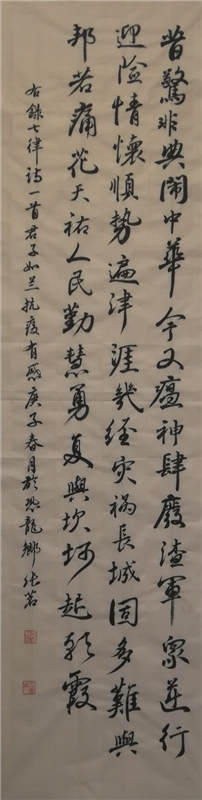 昔驚非典鬧中華今又瘟神肆廢渣軍眾逆行
迎險情懷順勢遍津涯幾經灾禍長城固多難興
邦若痛花天祐人民勤慧勇复興坎坷起霞
右錄七律詩一首君子如兰抗疫有感庚子春月於恐龍鄉张茗